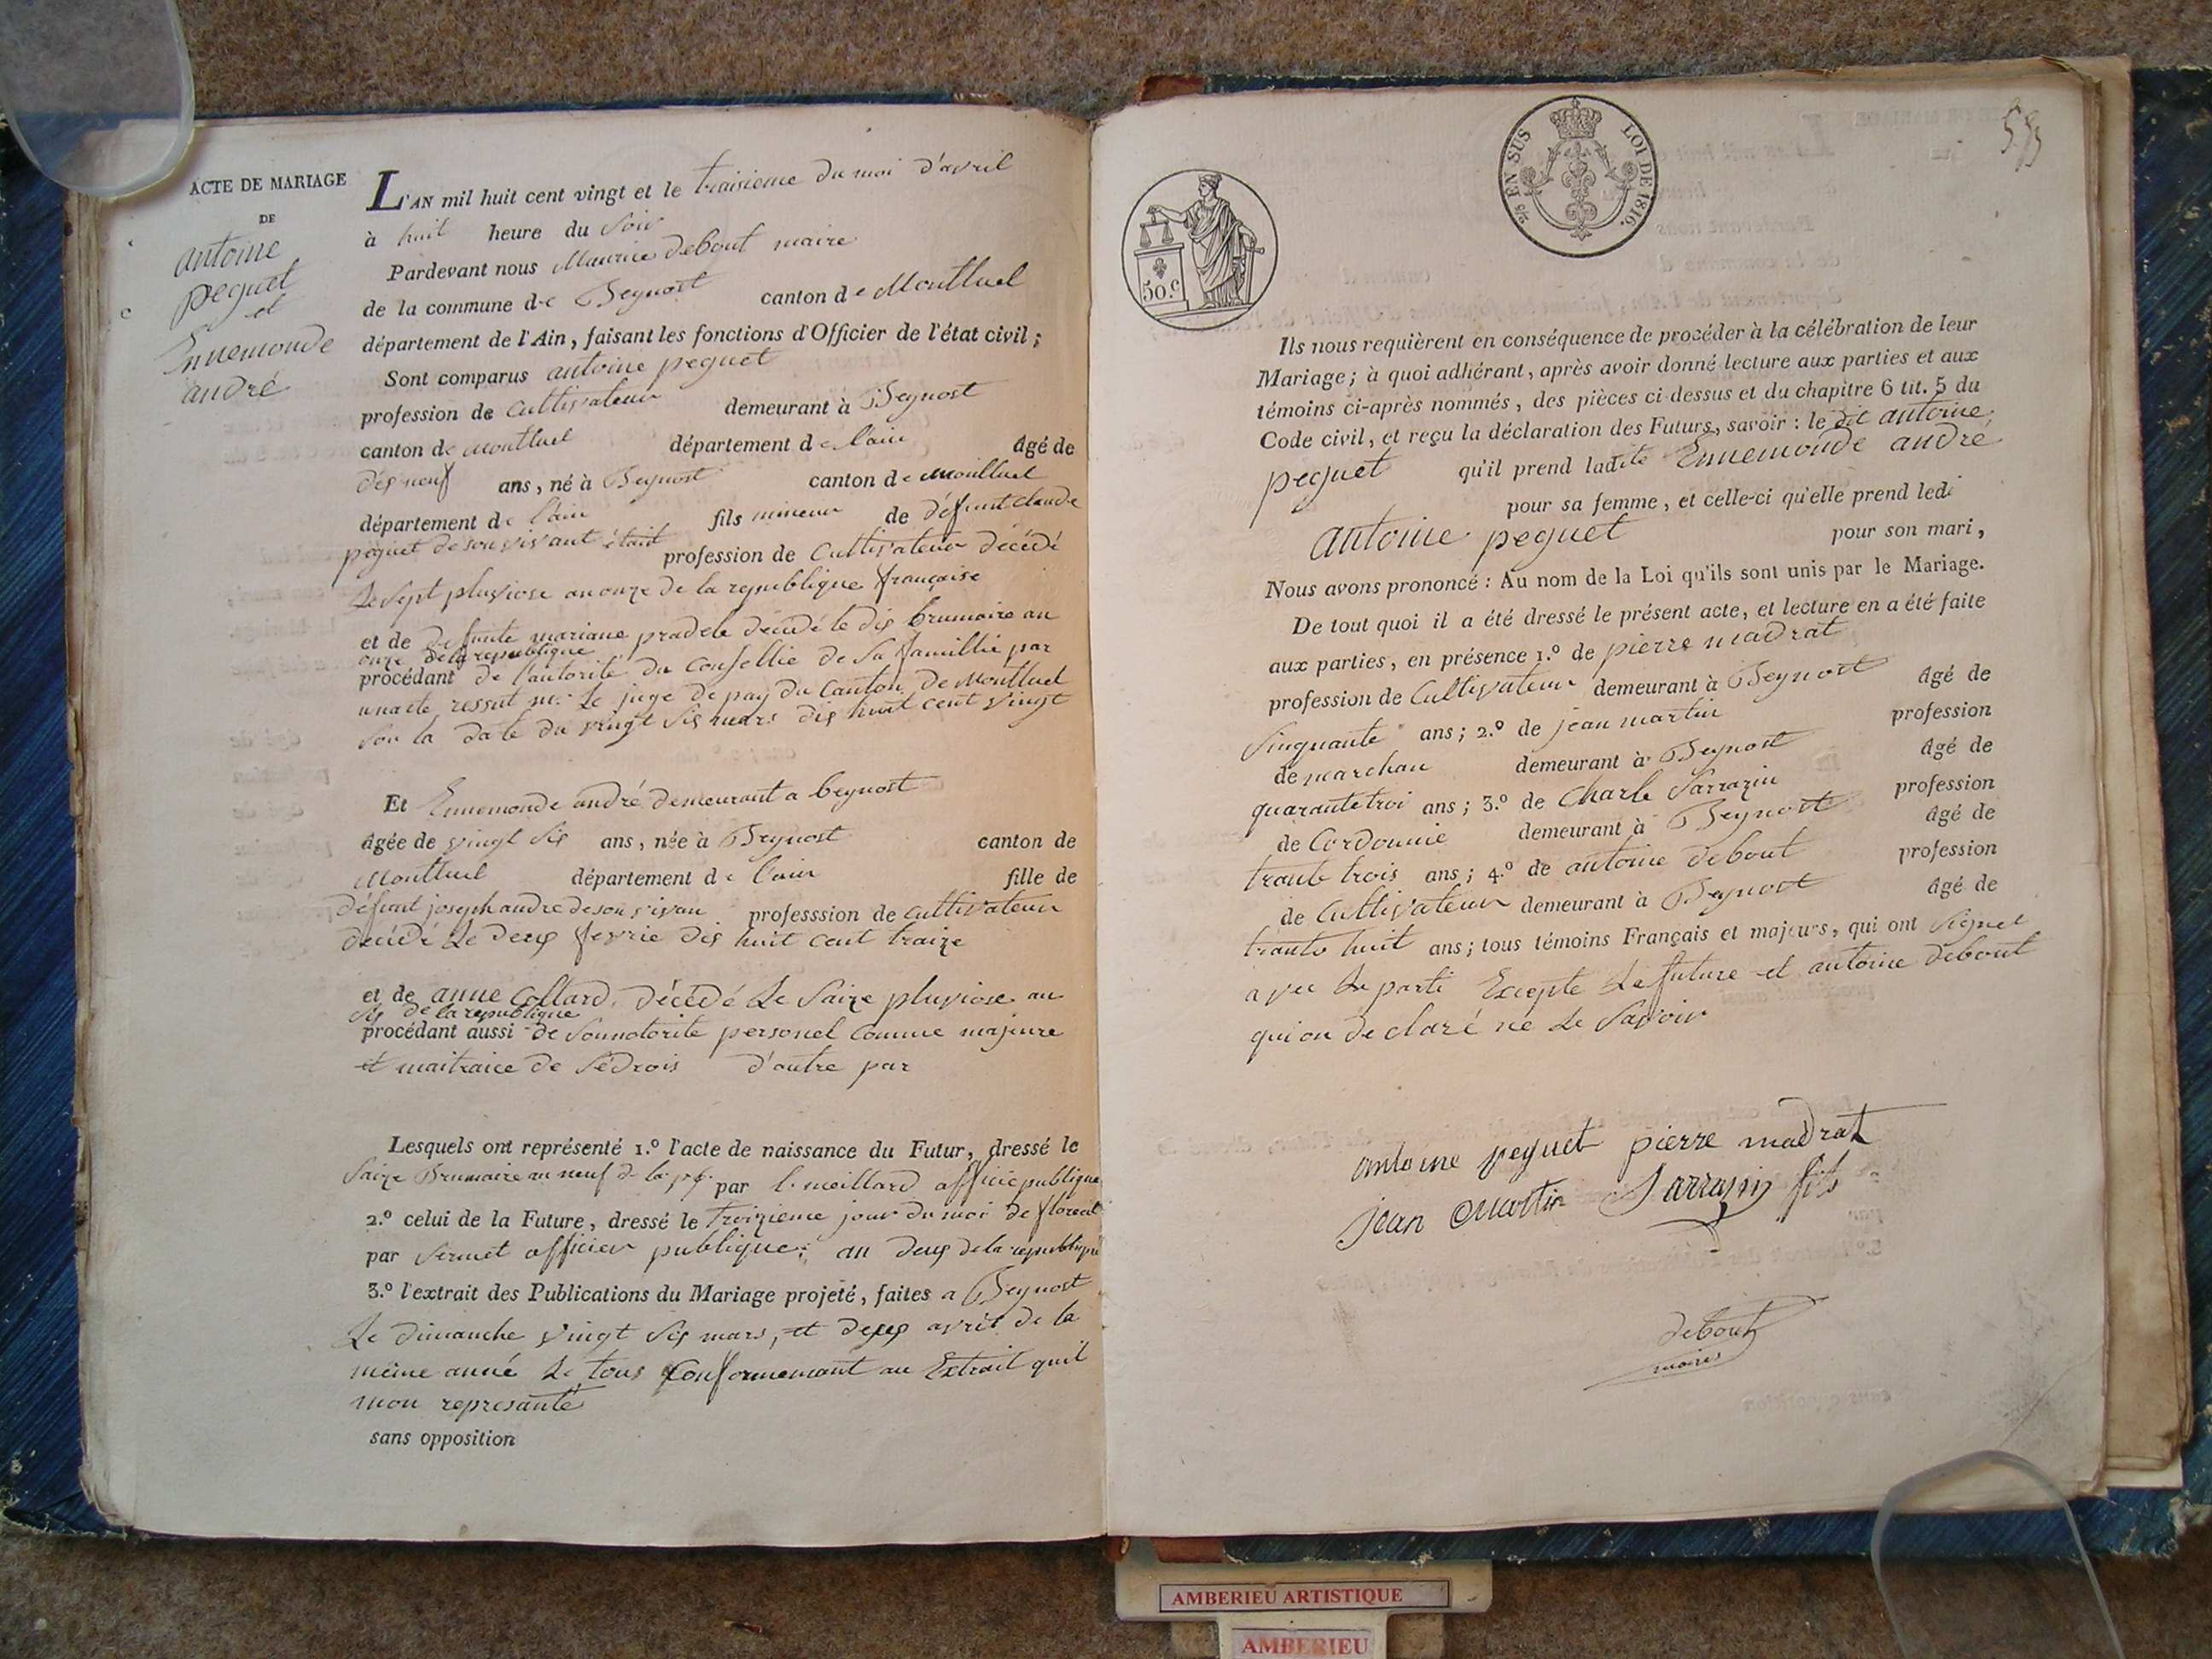 ACTE DE MARIAGE
DE
antoine
peguet
et
Ennemonde
andré
L'AN mil huit cent vingt et le traisieme du moi d'avril
à huit heure du soir
Pardevant nous Maurice debout maire
de la commune de Beynost canton de Montluel
département de l'Ain, faisant les fonctions d'Officier de l'état civil;
Sont comparus antoine peguet
profession de Cultivateur demeurant à Beynost
canton de Montluel département de l'ain âgé de
dis neuf ans, né à Beynost canton de Montluel
département de l'ain fils mineur de défunt claude
peguet de son vivant étant profession de Cultivateur décédé
Le sept pluviose an onze de la republique française
et de defunte mariane pradele décédé le dis brumaire an
onze de la republique
procédant de l'autorité du Consellie de sa famillie par
un acte ressut Mr Le juge de pay du Canton de Montluel
sou la date du vingt sis mars dis huit cent vingt
Et Ennemonde andré demeurant a beynost
âgée de vingt sis ans, née à Beynost canton de
Montluel département de l'ain fille de
défunt joseph andre de son vivan professsion de cultivateur
décédé Le deus fevrie dis huit cent traize
et de anne Collard décédé Le saize pluviose an
sis de la republique
procédant aussi de son notorite personel comme majeure
et maitraice de sedrois d'autre par
Lesquels ont représenté 1.º l'acte de naissance du Futur, dressé le
saize Brumaire an neuf d la par l. meillard officie publique
2.º celui de la Future, dressé le troizieme jour du moi de floreal
par officier publique; an deus de la republique
3.º l'extrait des Publications du Mariage projeté, faites a Beynost
Le dimanche vingt sis mars, et deus avril de la
même anné Le tous Conformemant au Extrait quil
mon represanté
sans opposition
5/3 EN SUS
LOI DE 1816.
50.c
Ils nous requièrent en conséquence de procéder à la célébration de leur
Mariage; à quoi adhérant, après avoir donné lecture aux parties et aux
témoins ci-après nommés, des pièces ci-dessus et du chapitre 6 tit. 5 du
Code civil, et reçu la déclaration des Futurs, savoir: le dit antoine
peguet qu'il prend ladite Ennemonde andré
pour sa femme, et celle-ci qu'elle prend ledi
antoine peguet pour son mari,
Nous avons prononcé: Au nom de la Loi qu'ils sont unis par le Mariage.
De tout quoi il a été dressé le présent acte, et lecture en a été faite
aux parties, en présence 1.º de pierre madrat
profession de Cultivateur demeurant à Beynost âgé de
sinquante ans; 2.º de jean martin profession
de marchan demeurant à Beynost âgé de
quarante troi ans; 3.º de Charle Sarrazin profession
de Cordonnie demeurant à Beynost âgé de
trante trois ans; 4.º de antoine debout profession
de Cultivateur demeurant à Beynost âgé de
trante huit ans; tous témoins Français et majeurs, qui ont signet
avec La parti Excepte La future et antoine debout
qui on declaré ne Le savoir
antoine peguet pierre madrat
jean Martin Sarrazin fils
debout
maire
AMBERIEU ARTISTIQUE
AMBERIEU